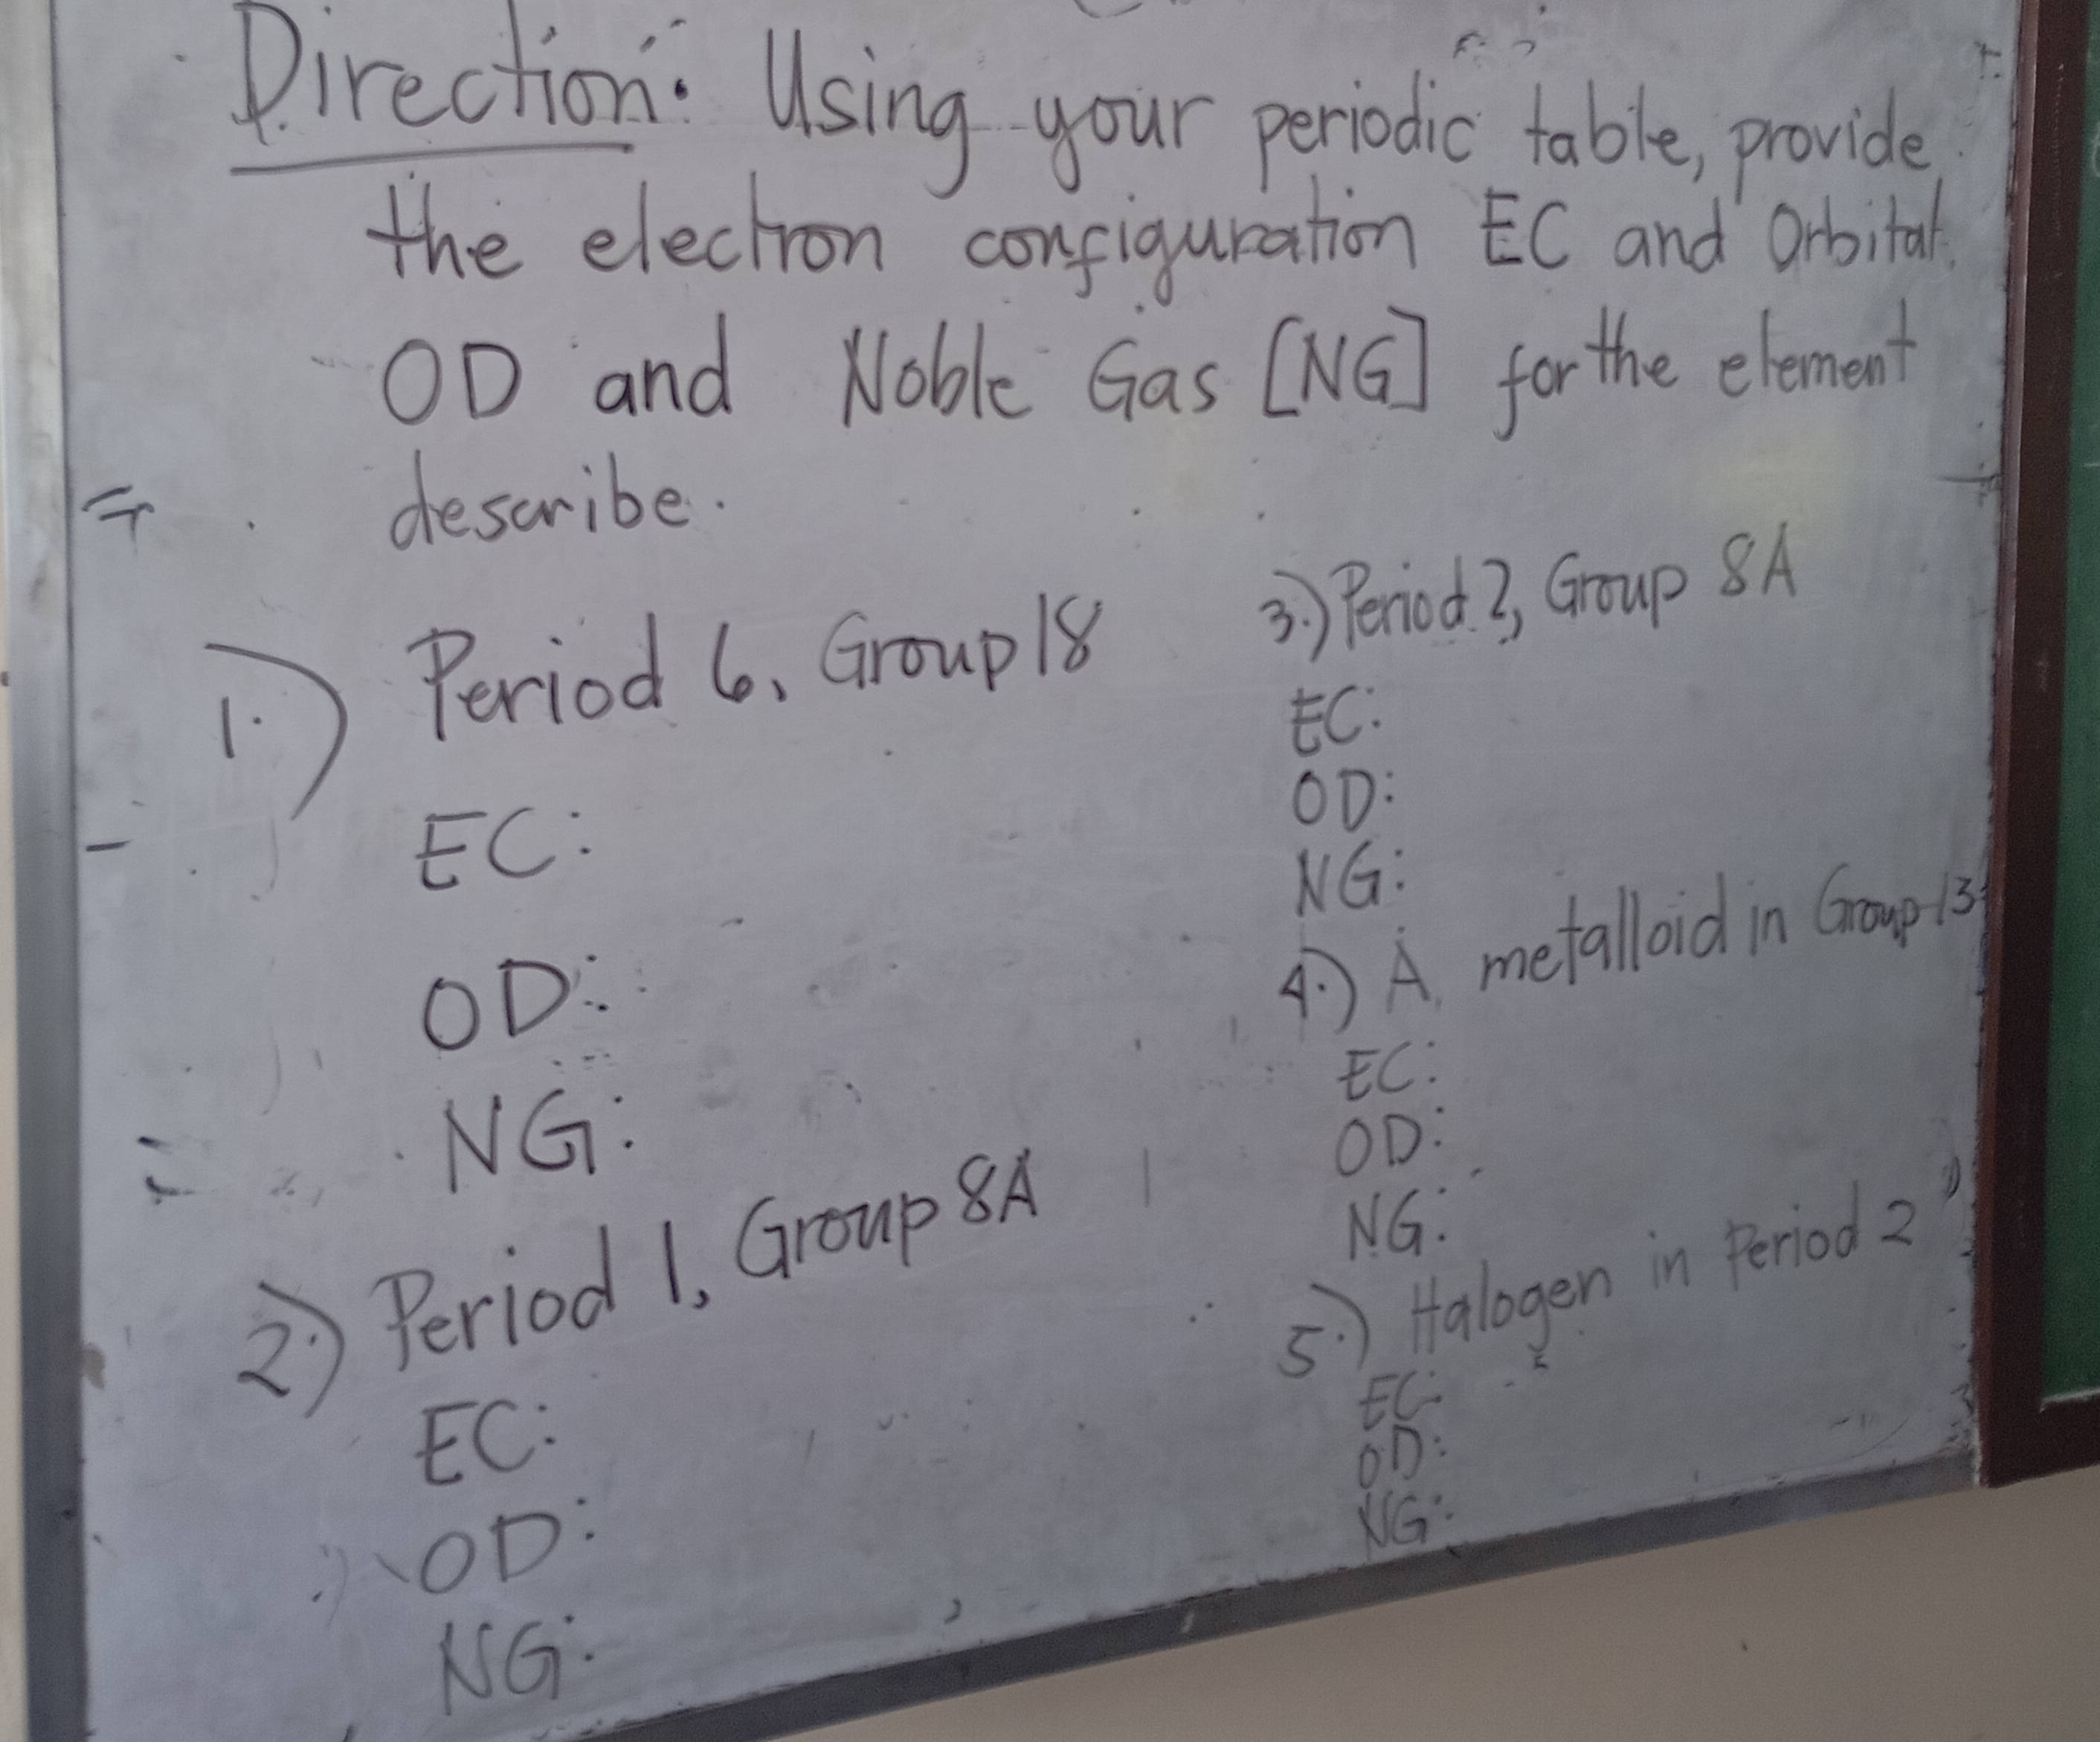 Direction: Using your periodic table, provide
the electron configuration EC and Orbital
OD and Noble Gas [NG] for the element
describe.
1.) Period 6, Group 18
EC:
OD:
NG:
2.) Period 1, Group 8A
EC:
OD:
NG:
3.) Period 2, Group 8A
EC:
OD:
NG:
4.) A metalloid in Group 13
EC:
OD:
NG:
5.) Halogen in Period 2
EC:
OD:
NG: